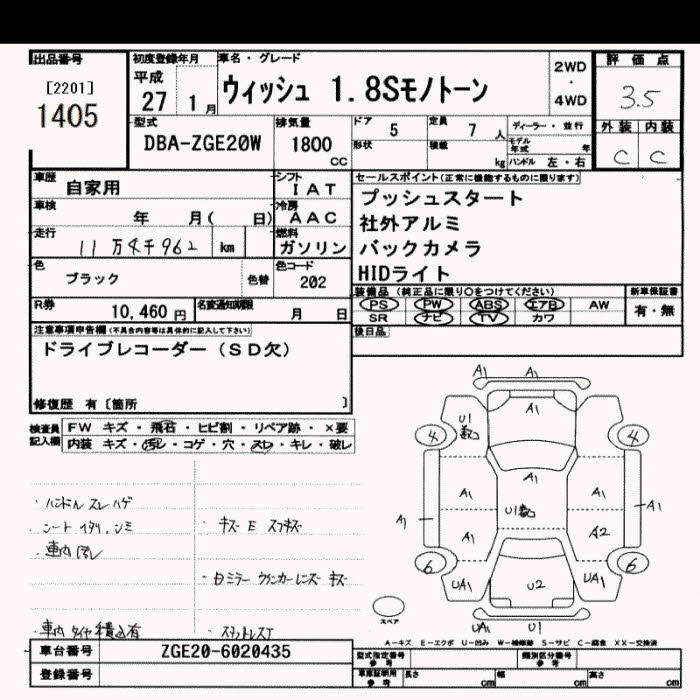 出品番号
[2201]
1405
初度登録年月
平成
27 1月
車名・グレード
ウィッシュ 1.8Sモノトーン
2WD
・
4WD
評価点
3.5
外装 内装
C C
型式
DBA-ZGE20W
排気量
1800
CC
ドア
5
定員
7 人
形状
積載
kg
ディーラー・並行
モデル年式 年
ハンドル 左・右
車歴
自家用
シフト
IAT
車検
年 月( 日)
冷房
AAC
走行
11万4千962 km
燃料
ガソリン
色
ブラック
色替
色コード
202
R券
10,460円
名変通知期限
月 日
セールスポイント(正常に機能するものに限ります)
プッシュスタート
社外アルミ
バックカメラ
HIDライト
装備品(純正品に限り○をつけてください)
PS PW ABS エアB AW
SR ナビ TV カワ
新車保証書
有・無
後日品
注意事項申告欄(不具合内容等は具体的に記入して下さい)
ドライブレコーダー(SD欠)
修復歴 有〔箇所 〕
検査員記入欄
FW キズ・飛石・ヒビ割・リペア跡・×要
内装 キズ・汚レ・コゲ・穴・スレ・キレ・破レ
・ハンドル スレ ハゲ
・シート イタミ シミ
・車内 汚レ
車内 タイヤ 積込有
・キズ E スリキズ
・Dミラー ウィンカーレンズ キズ
A1 A1
A1
U1
数コ
4 4
A1
A1 A1
A1 U1数コ A1
A1 A2
6 6
UA1 U2 UA1
UA1 U1
スペア
A-キズ E-エクボ U-凹み W-補修跡 S-サビ C-腐食 XX-交換済
車台番号
ZGE20-6020435
登録番号
型式指定番号
参考
類別区分番号
参考
車庫証明用
参考
長さ cm
幅 cm
高さ cm